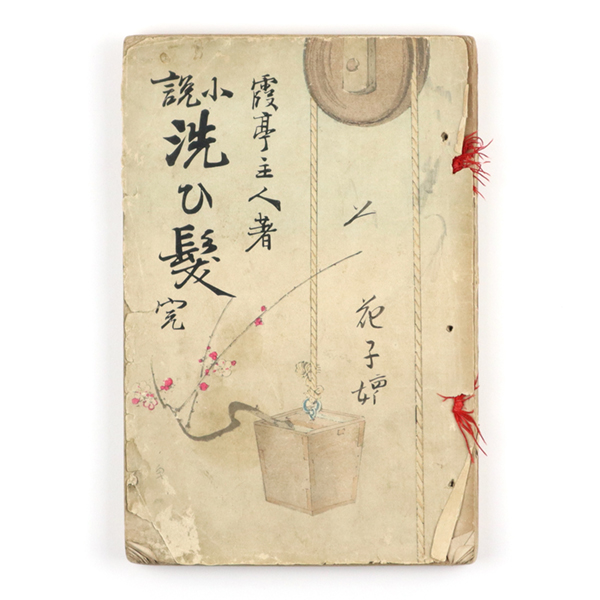 花子
霞亭主人著
小説
洗ひ髪
完